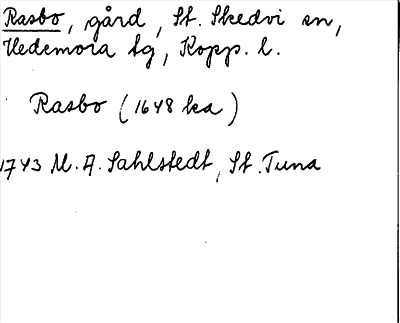 Rasbo, gård, St. Skedvi sn,
Hedemora tg, Kopp. l.
Rasbo (1648 ka)
1743 M. A. Sahlstedt, St. Tuna